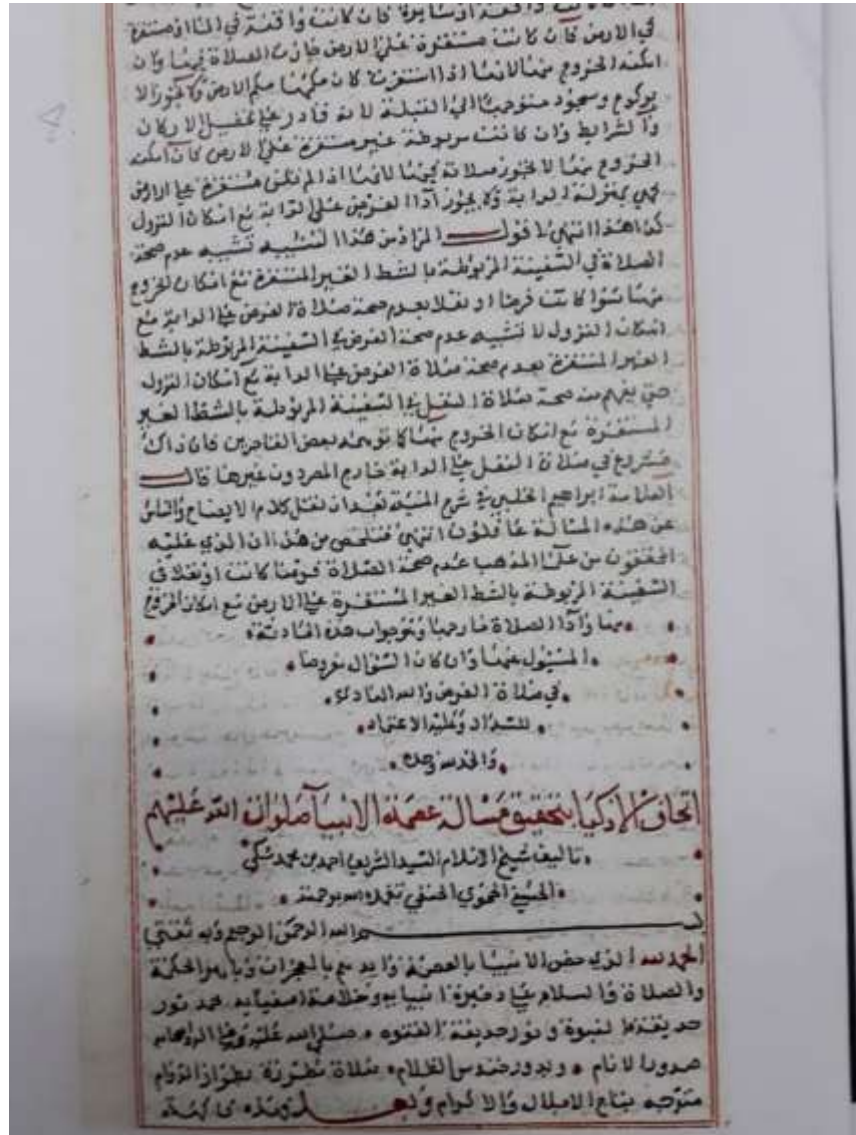 كانت واقعة او سايرة فان كانت واقفة في الماء او مستقرة
في الارض فان كانت مستقرة على الارض جازت الصلاة فيها وان
امكنه الخروج منها لانها اذا استقرت كان حكمها حكم الارض ولا يجوز الا
بركوع وسجود متوجها الى القبلة لانه قادر على تحصيل الاركان
والشرايط وان كانت مربوطة غير مستقرة على الارض فان امكنه
الخروج منها لا تجوز صلاته فيها لانها اذا لم تكن مستقرة على الارض
فهي بمنزلة الدابة ولا يجوز اداء الفرض على الدابة مع امكان النزول
كذا هذا انتهى اقول المراد من هذا التشبيه تشبيه عدم صحة
الصلاة في السفينة المربوطة بالشط الغير المستقرة مع امكان الخروج
منها سوا كانت فرضا او نفلا بعدم صحة صلاة الفرض على الدابة مع
امكان النزول لا تشبيه عدم صحة الفرض في السفينة المربوطة بالشط
الغير المستقرة بعدم صحة صلاة الفرض على الدابة مع امكان النزول
حتى يفهم منه صحة صلاة النفل في السفينة المربوطة بالشط الغير
المستقرة مع امكان الخروج منها كما توهمه بعض القاصرين فان ذاك
مشروع في صلاة النفل على الدابة خارج المصر دون غيرها قال
العلامة ابراهيم الحلبي في شرح المنية بعد ان نقل كلام الايضاح والناس
عن هذه المسالة غافلون انتهى فتلخص من هذا ان الذي عليه
المحققون من علماء المذهب عدم صحة الصلاة فرضا كانت او نفلا في
السفينة المربوطة بالشط الغير المستقرة على الارض مع امكان الخروج
منها واذا الصلاة خارجها وهو جواب هذه الحادثة
المسئول عنها وان كان السؤال مفروضا
في صلاة الفرض والله الهادي
للسداد وعليه الاعتماد
والحمد لله وحده
اتحاف الاذكيا بتحقيق مسالة عصمة الانبيا صلوات الله عليهم
تاليف شيخ الاسلام السيد الشريف احمد بن محمد مكي
الحسيني الحموي الحنفي تغمده الله برحمته
بسم الله الرحمن الرحيم وبه ثقتي
الحمد لله الذي خص الانبيا بالعصمة وايدهم بالمعجزات وباهر الحكمة
والصلاة والسلام على ذخيرة انبيايه وخلاصة اصفيايه محمد نور
حديقة النبوة ونور حديقة الفتوه صلى الله عليه وعلى اله واصحابه
صدور الانام وبدور حندس الظلام صلاة مطرزة بطراز الدوام
متوجه بتاج الاجلال والاكرام وبعد فهذه